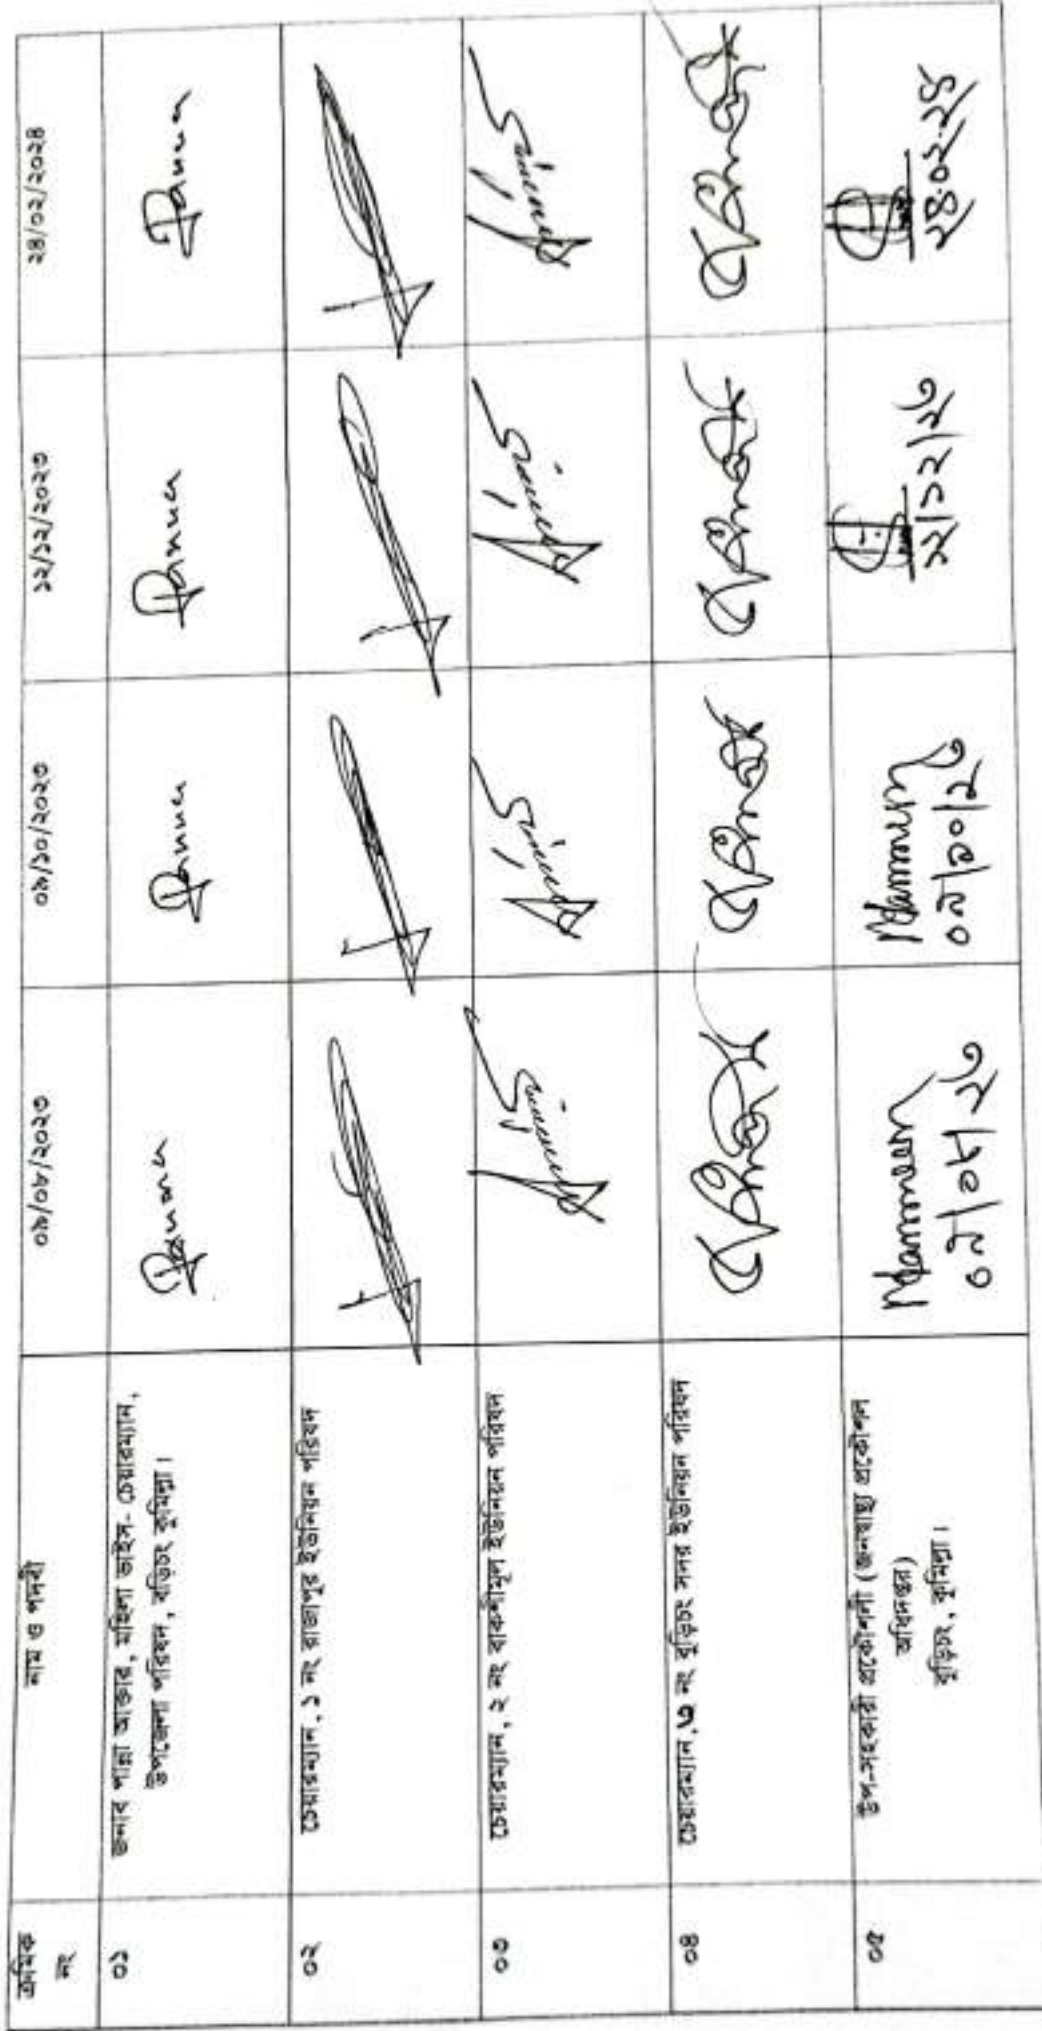 ক্রমিক নং নাম ও পদবী ০৯/০৮/২০২৩ ০৯/১০/২০২৩ ১২/১২/২০২৩ ২৪/০২/২০২৪
০১ জনাব পান্না আক্তার, মহিলা ভাইস- চেয়ারম্যান, Panna Panna Panna Panna
উপজেলা পরিষদ, বড়িচং কুমিল্লা।
০২ চেয়ারম্যান, ১ নং রাজাপুর ইউনিয়ন পরিষদ
০৩ চেয়ারম্যান, ২ নং বাকশীমূল ইউনিয়ন পরিষদ
০৪ চেয়ারম্যান, ৩ নং বুড়িচং সদর ইউনিয়ন পরিষদ
০৫ উপ-সহকারী প্রকৌশলী (জনস্বাস্থ্য প্রকৌশল
অধিদপ্তর)
বুড়িচং, কুমিল্লা।
০৯/০৮/২৩ ০৯/১০/২৩ ১২/১২/২৩ ২৪.০২.২৪